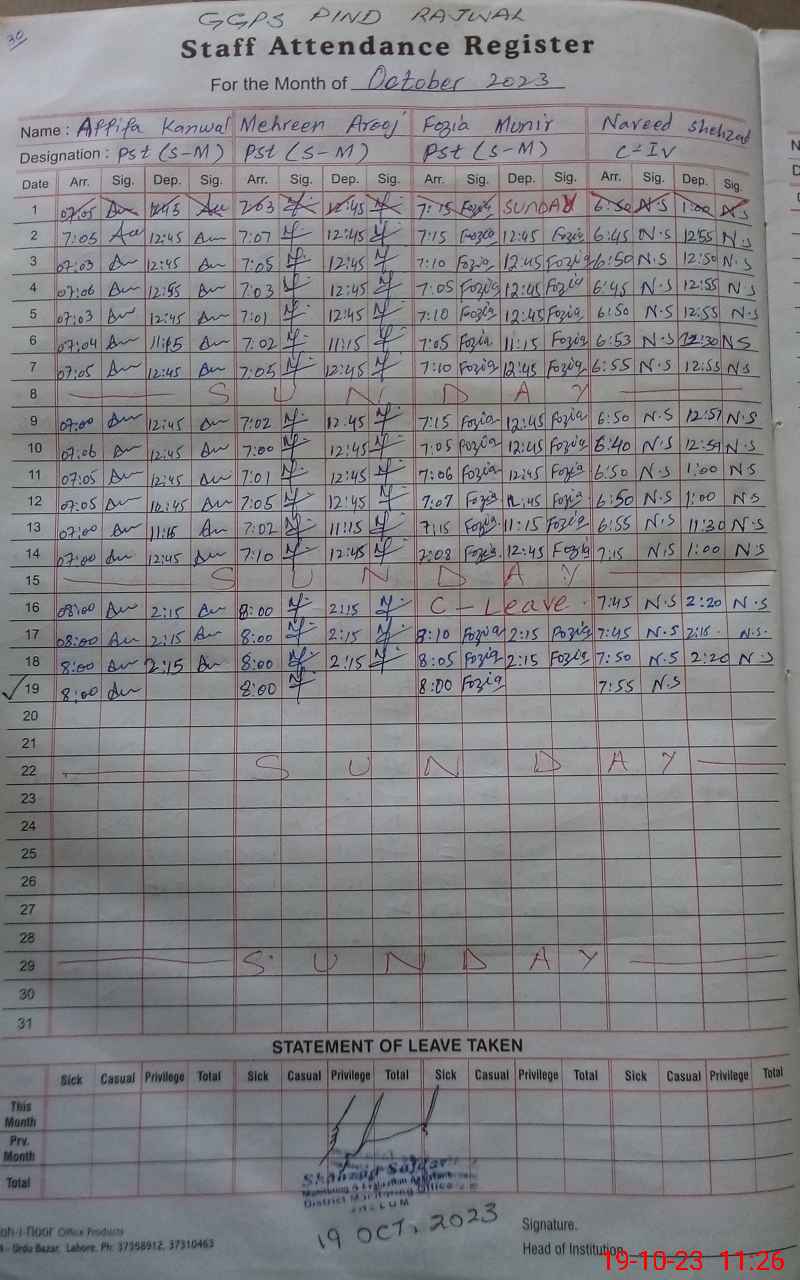 30
GGPS PIND RAJWAL
Staff Attendance Register
For the Month of October 2023
Name : Affifa Kanwal Mehreen Arooj Fozia Munir Naveed Shehzad
Designation : PSt (S-M) PSt (S-M) PSt (S-M) C-IV
Date Arr. Sig. Dep. Sig. Arr. Sig. Dep. Sig. Arr. Sig. Dep. Sig. Arr. Sig. Dep. Sig.
1 07:05 12:45 7:03 12:45 7:15 Fozia SUNDAY 6:50 N.S 1:00 N.S
2 7:05 12:45 7:07 12:45 7:15 Fozia 12:45 Fozia 6:45 N.S 12:55 N.S
3 07:03 12:45 7:05 12:45 7:10 Fozia 12:45 Fozia 6:50 N.S 12:50 N.S
4 07:06 12:55 7:03 12:45 7:05 Fozia 12:45 Fozia 6:45 N.S 12:55 N.S
5 07:03 12:45 7:01 12:45 7:10 Fozia 12:45 Fozia 6:50 N.S 12:55 N.S
6 07:04 11:15 7:02 11:15 7:05 Fozia 11:15 Fozia 6:53 N.S 12:30 NS
7 07:05 12:45 7:05 12:45 7:10 Fozia 12:45 Fozia 6:55 N.S 12:55 N.S
8 S U N D A Y
9 07:00 12:45 7:02 12:45 7:15 Fozia 12:45 Fozia 6:50 N.S 12:57 N.S
10 07:06 12:45 7:00 12:45 7:05 Fozia 12:45 Fozia 6:40 N.S 12:59 N.S
11 07:05 12:45 7:01 12:45 7:06 Fozia 12:45 Fozia 6:50 N.S 1:00 N.S
12 07:05 12:45 7:05 12:45 7:07 Fozia 12:45 Fozia 6:50 N.S 1:00 N.S
13 07:00 11:15 7:02 11:15 7:15 Fozia 11:15 Fozia 6:55 N.S 11:30 N.S
14 07:00 12:45 7:10 12:45 7:08 Fozia 12:45 Fozia 7:15 N.S 1:00 N.S
15 S U N D A Y
16 08:00 2:15 8:00 2:15 C - Leave. 7:45 N.S 2:20 N.S
17 08:00 2:15 8:00 2:15 8:10 Fozia 2:15 Fozia 7:45 N.S 2:15 N.S.
18 8:00 2:15 8:00 2:15 8:05 Fozia 2:15 Fozia 7:50 N.S 2:20 N.S
19 8:00 8:00 8:00 Fozia 7:55 N.S
20
21
22 S U N D A Y
23
24
25
26
27
28
29 S U N D A Y
30
31
STATEMENT OF LEAVE TAKEN
Sick Casual Privilege Total Sick Casual Privilege Total Sick Casual Privilege Total Sick Casual Privilege Total
This Month
Prv. Month
Total
District Monitoring Office
JHELUM
19 OCT, 2023
oh-i-noor Office Products
Urdu Bazar, Lahore. Ph: 37358912, 37310463
Signature.
Head of Institution
19-10-23 11:26